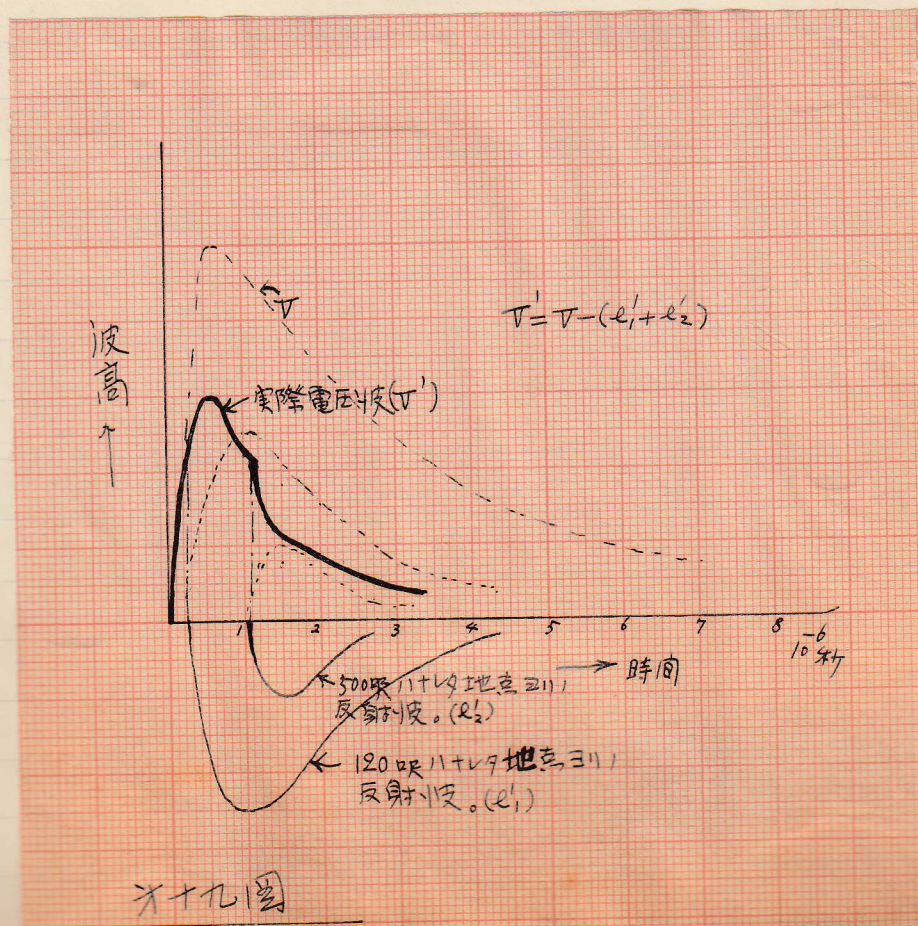 V
V'=V-(e'₁+e'₂)
波高→
実際電圧波(V')
1 2 3 4 5 6 7 8
10⁻⁶秒
→時間
500呎ハナレタ地点ヨリノ
反射波。(e'₂)
120呎ハナレタ地点ヨリノ
反射波。(e'₁)
才十九図